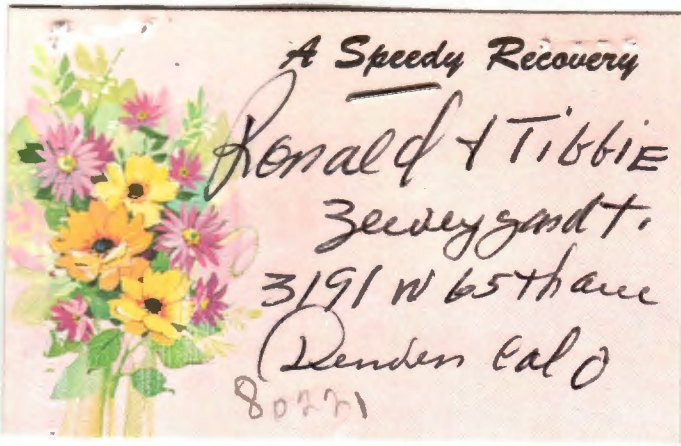 A Speedy Recovery
Ronald + Tibbie
3191 W 65th ave
Denven Colo
80221